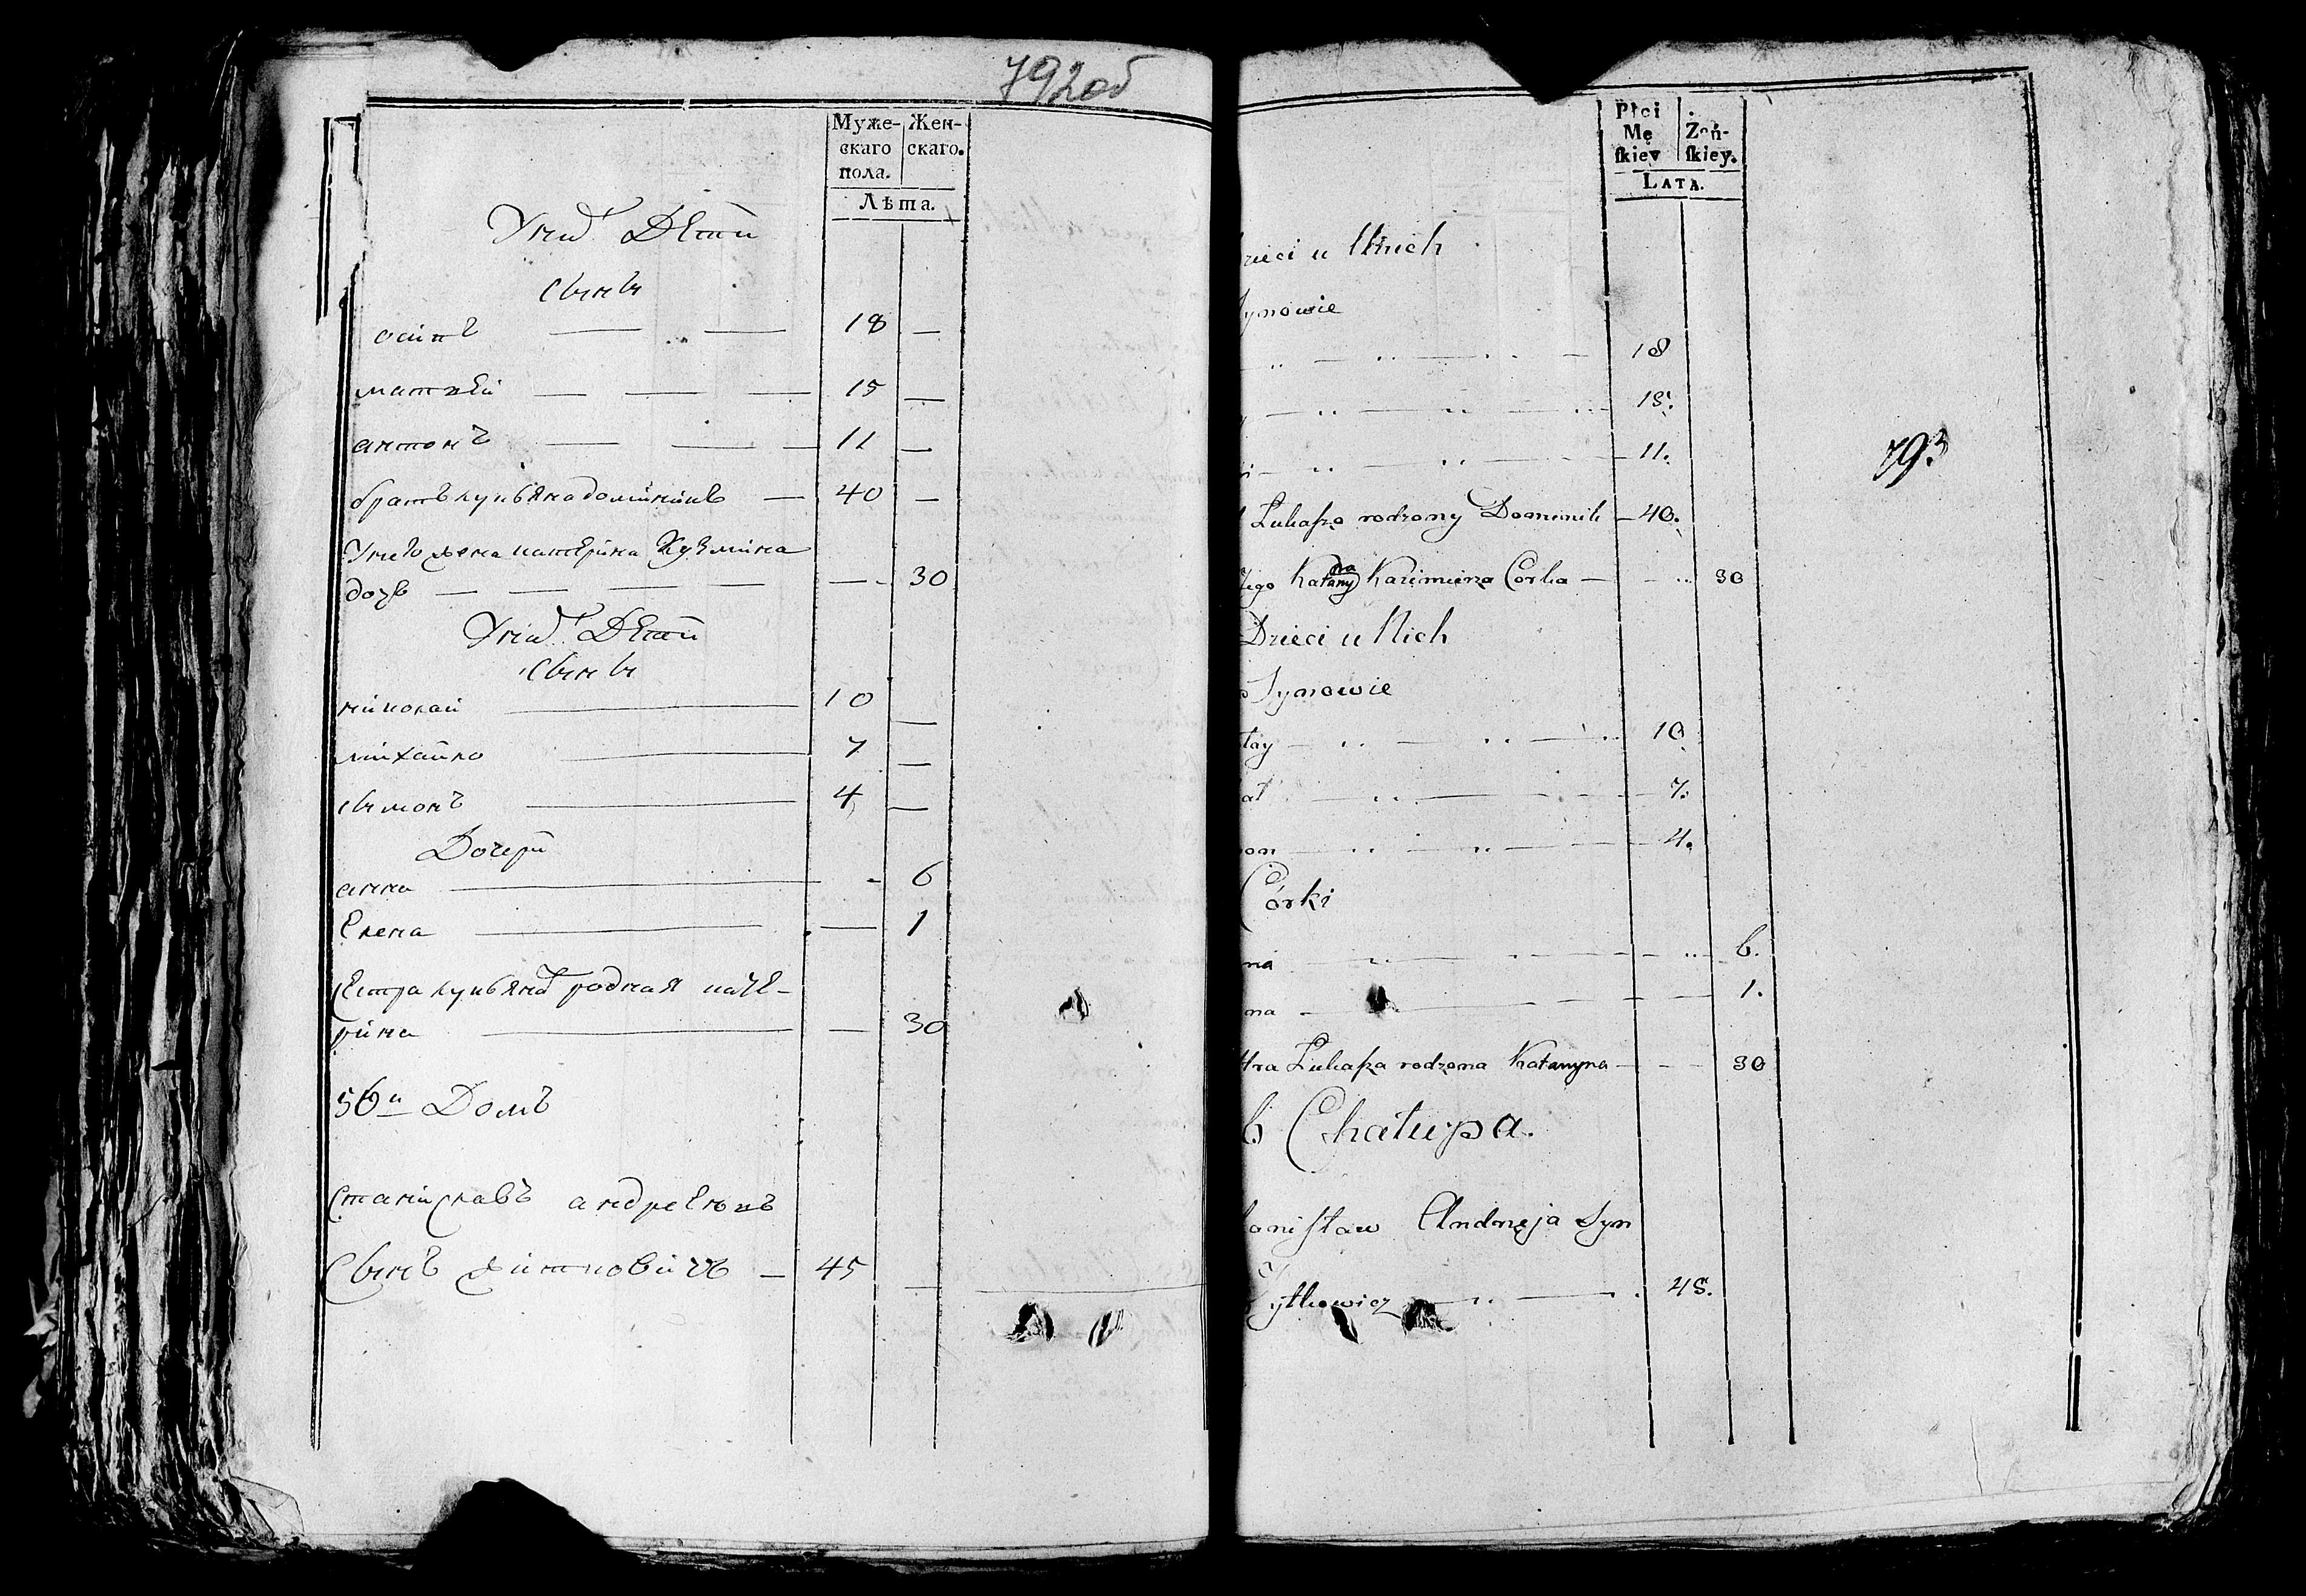 792об
Муже- Жен-
скаго скаго.
пола.
Лѣта.
У них Дети
Сыны
осипъ — — 18 —
матвей — — — 15 —
антонъ — — — 11 —
братъ лукьяна доминикъ — 40 —
У него жена катерина Кузмина
дочь — — — — — 30
У них Дети
Сыны
николай — 10 —
михайло — 7 —
сымонъ — 4 —
Дочери
анна — - 6
Елена — — 1
сестра лукьяна родная кате-
рина — — 30
56й Домъ
Станиславъ андреевъ
Сынъ житковичъ — 45 —
Płci
Mę Żeń-
ſkiey ſkiey.
LATA.
rzieci u Nich
ynowie
18
15.
11.
Lukaſza rodzony Dominik — 40.
Jego Katarzyna Kazimierza Corka — 30
Dzieci u Nich
Synowie
łay — 10.
ał — 7.
on — 4.
Córki
na — 6.
na — 1.
stra Lukaſza rodzona Katarzyna — 30
6 Chałupa.
taniſław Andrzeja Syn
Zytkowicz — 45.
793